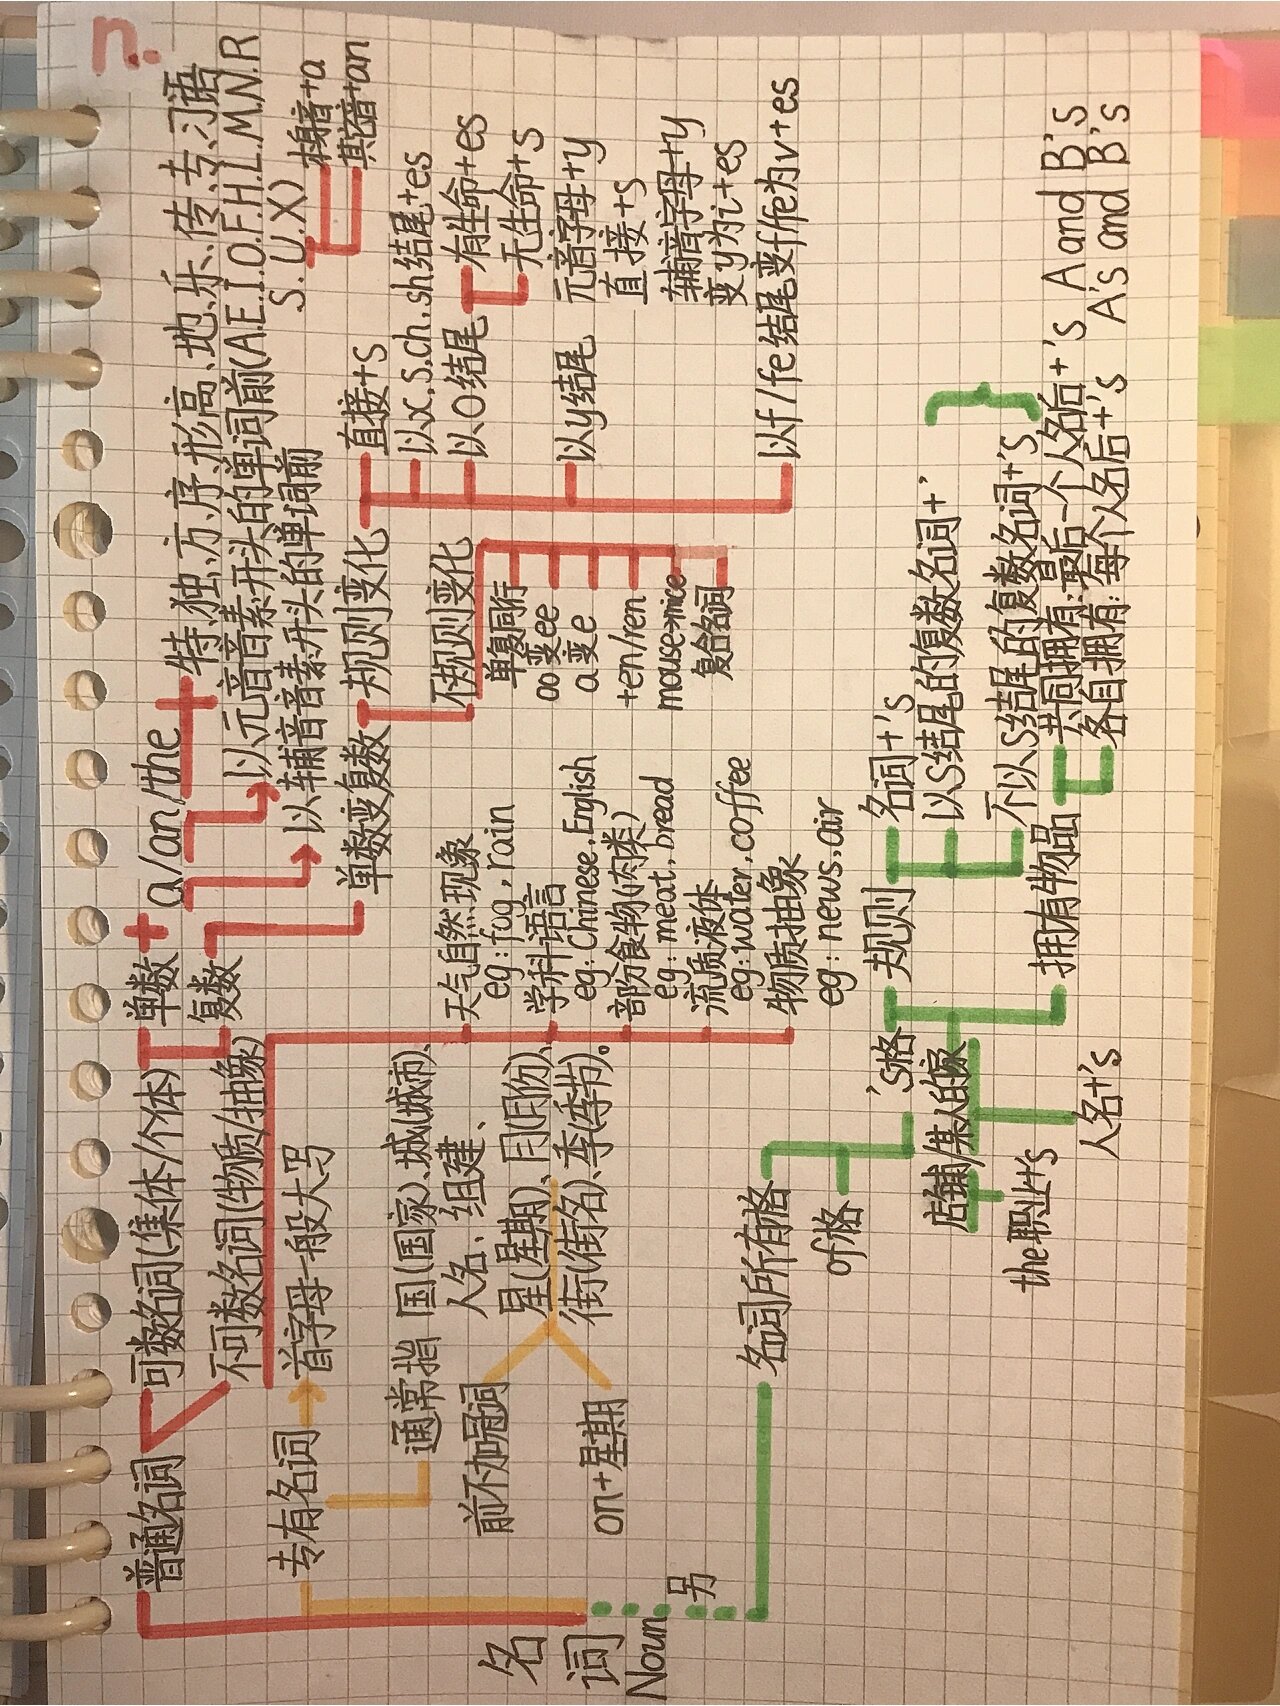 n.
名词
Noun
普通名词
可数名词(集体/个体)
单数
a/an/the
特、独、方、序、形高、地、乐、传、专、习语
以元音音素开头的单词前(A.E.I.O.F.H.L.M.N.R
S.U.X)
以辅音音素开头的单词前
复数
单数变复数
规则变化
直接+s
以x.s.ch.sh结尾+es
以O结尾
有生命+es
无生命+s
以y结尾
元音字母+y
直接+s
辅音字母+y
变y为i+es
以f/fe结尾变f/fe为v+es
不规则变化
单复同行
oo变ee
a变e
+en/ren
mouse→mice
复合名词
不可数名词(物质/抽象)
天气自然现象
eg:fog,rain
学科语言
eg:Chinese.English
部分食物(肉类)
eg:meat,bread
流质液体
eg:water,coffee
物质抽象
eg:news.air
专有名词
首字母一般大写
通常指
国(国家)、城(城市)、
人名、组建、
星(星期)、月(月份)、
街(街名)、季(季节)。
前不加冠词
on+星期
另
名词所有格
of格
's格
规则
名词+'s
以S结尾的复数名词+'
不以S结尾的复数名词+'s
拥有物品
共同拥有:最后一个人名后+'s A and B's
各自拥有:每个人名后+'s A's and B's
店铺/某人的家
the职业+'s
人名+'s